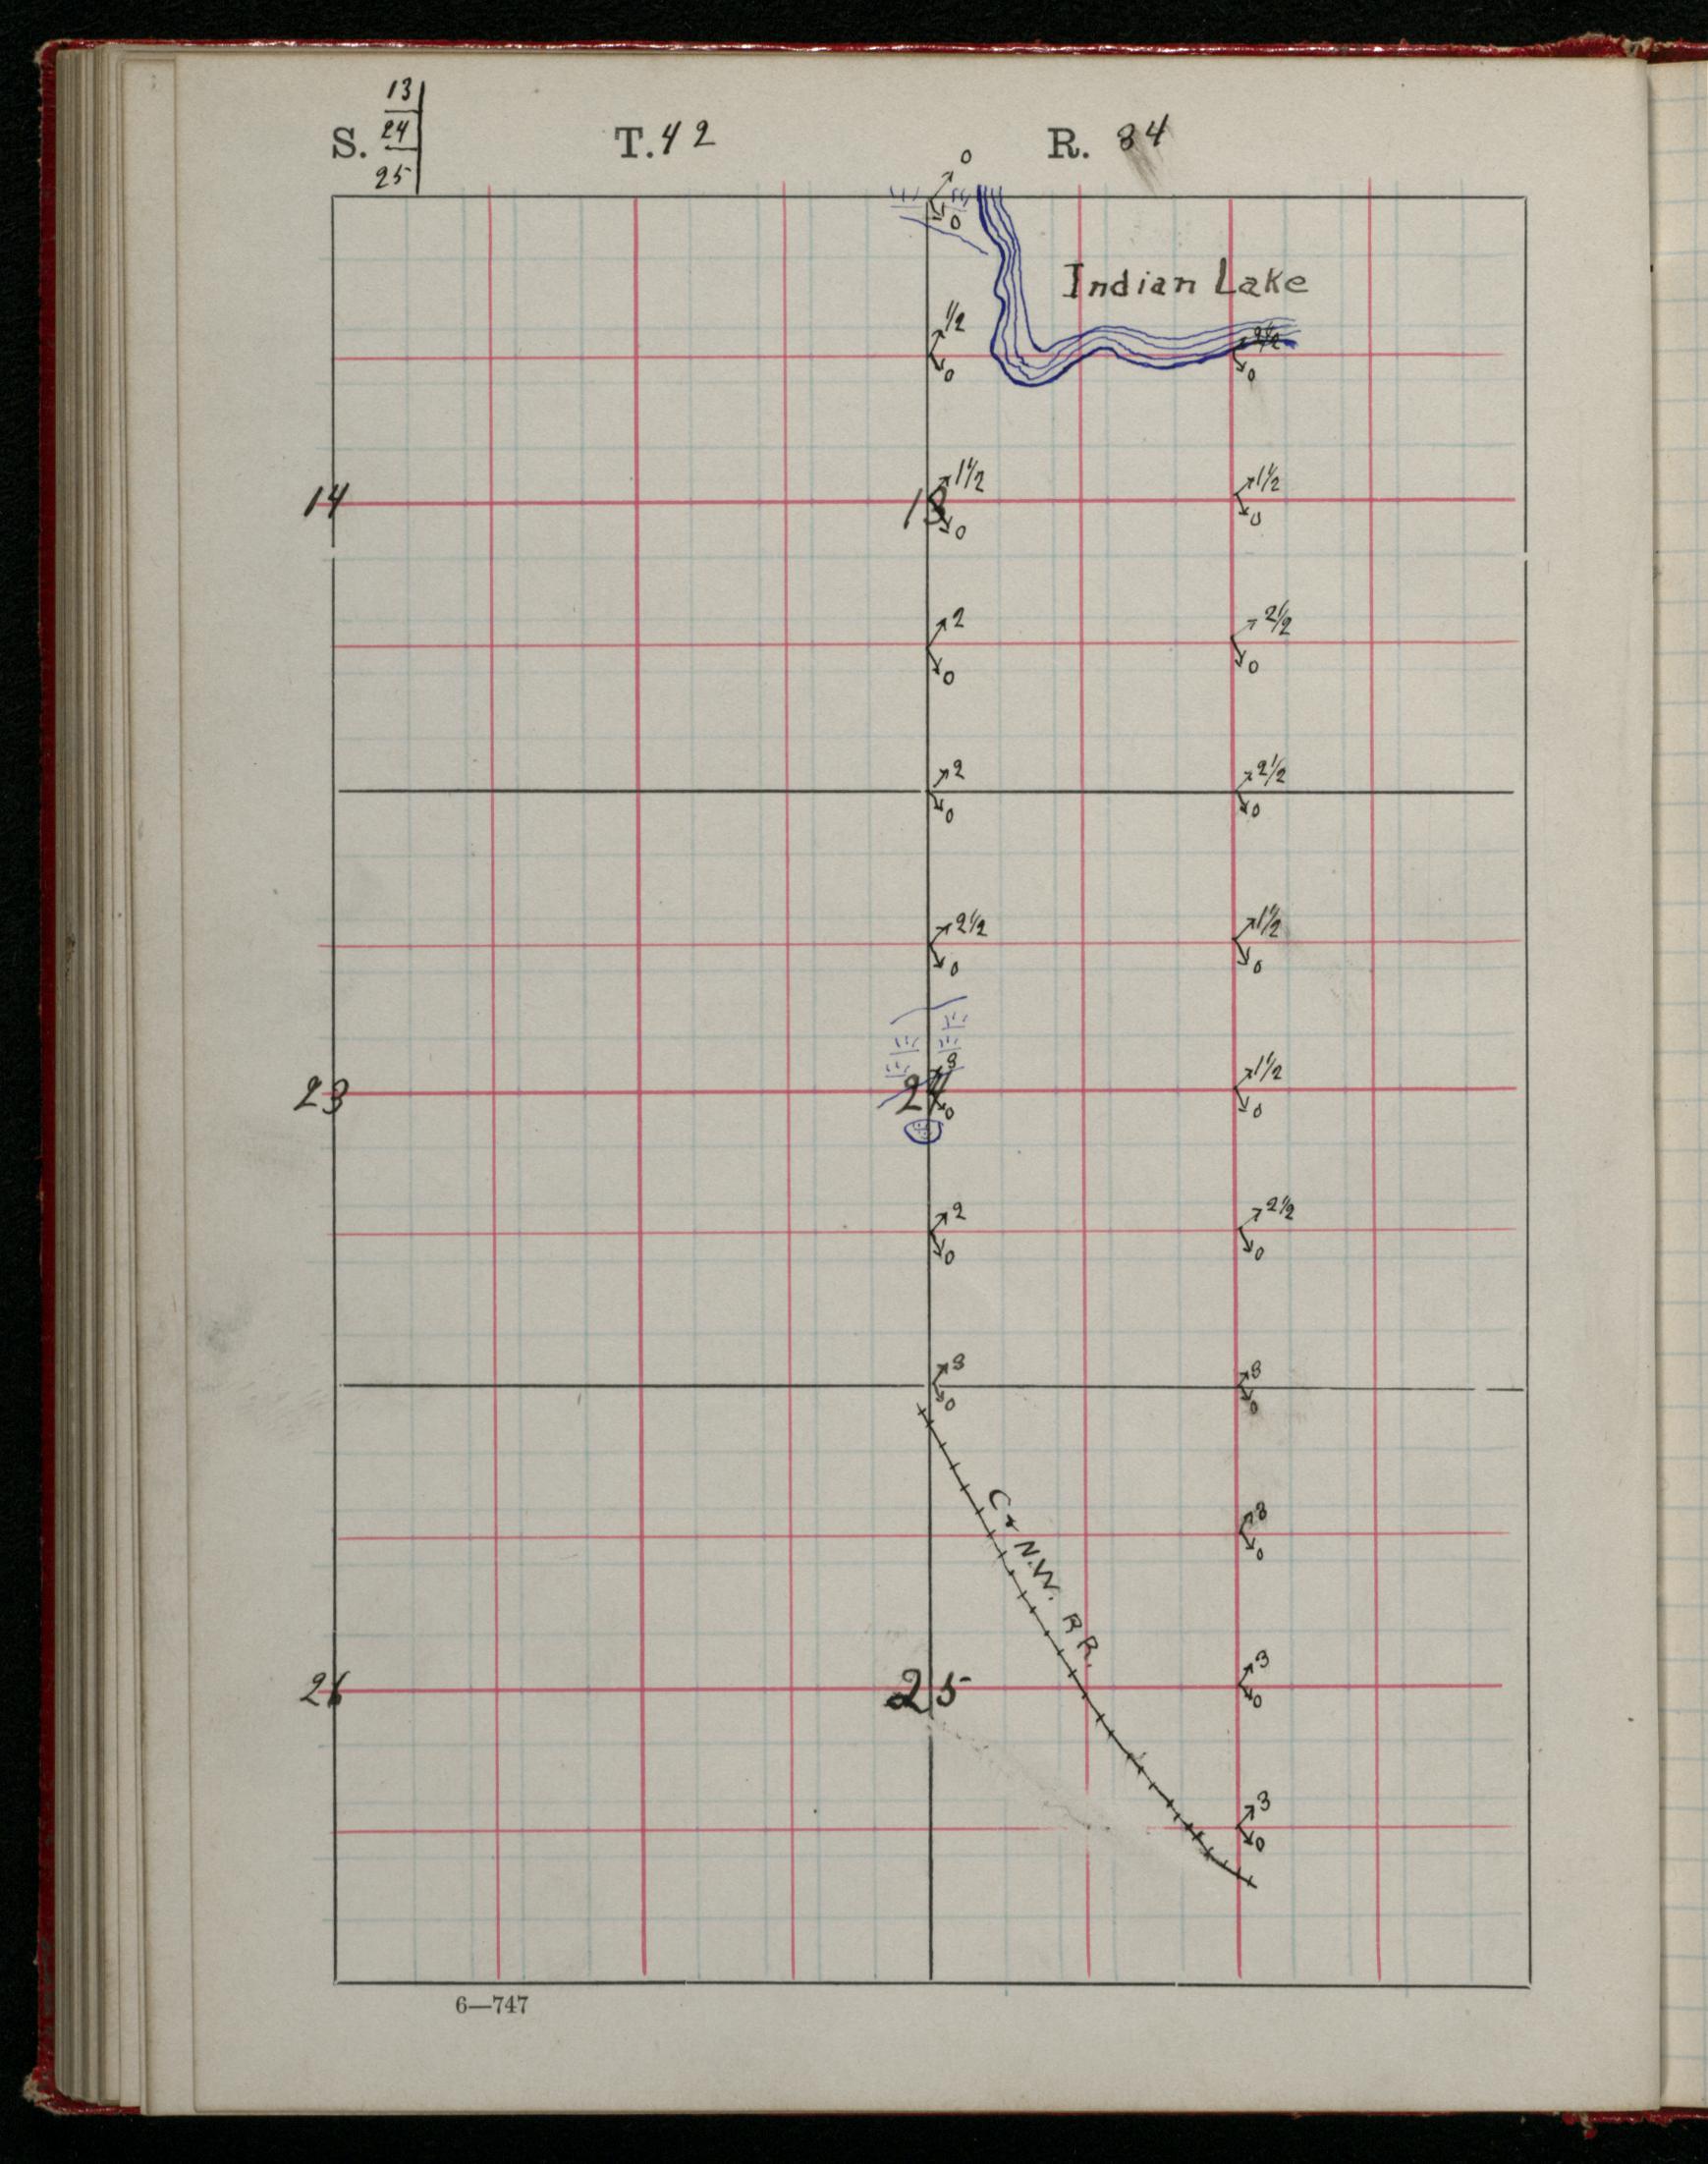 13
S. 24 T. 42 R. 34
25
0
0
Indian Lake
1/2
0
2 1/2
0
14
13
1 1/2
0
1 1/2
0
2
0
2 1/2
0
2
0
2 1/2
0
2 1/2
0
1 1/2
0
23
24
3
0
1 1/2
0
2
0
2 1/2
0
3
0
3
0
C + N.W. R R.
3
0
26
25
3
0
3
0
6—747